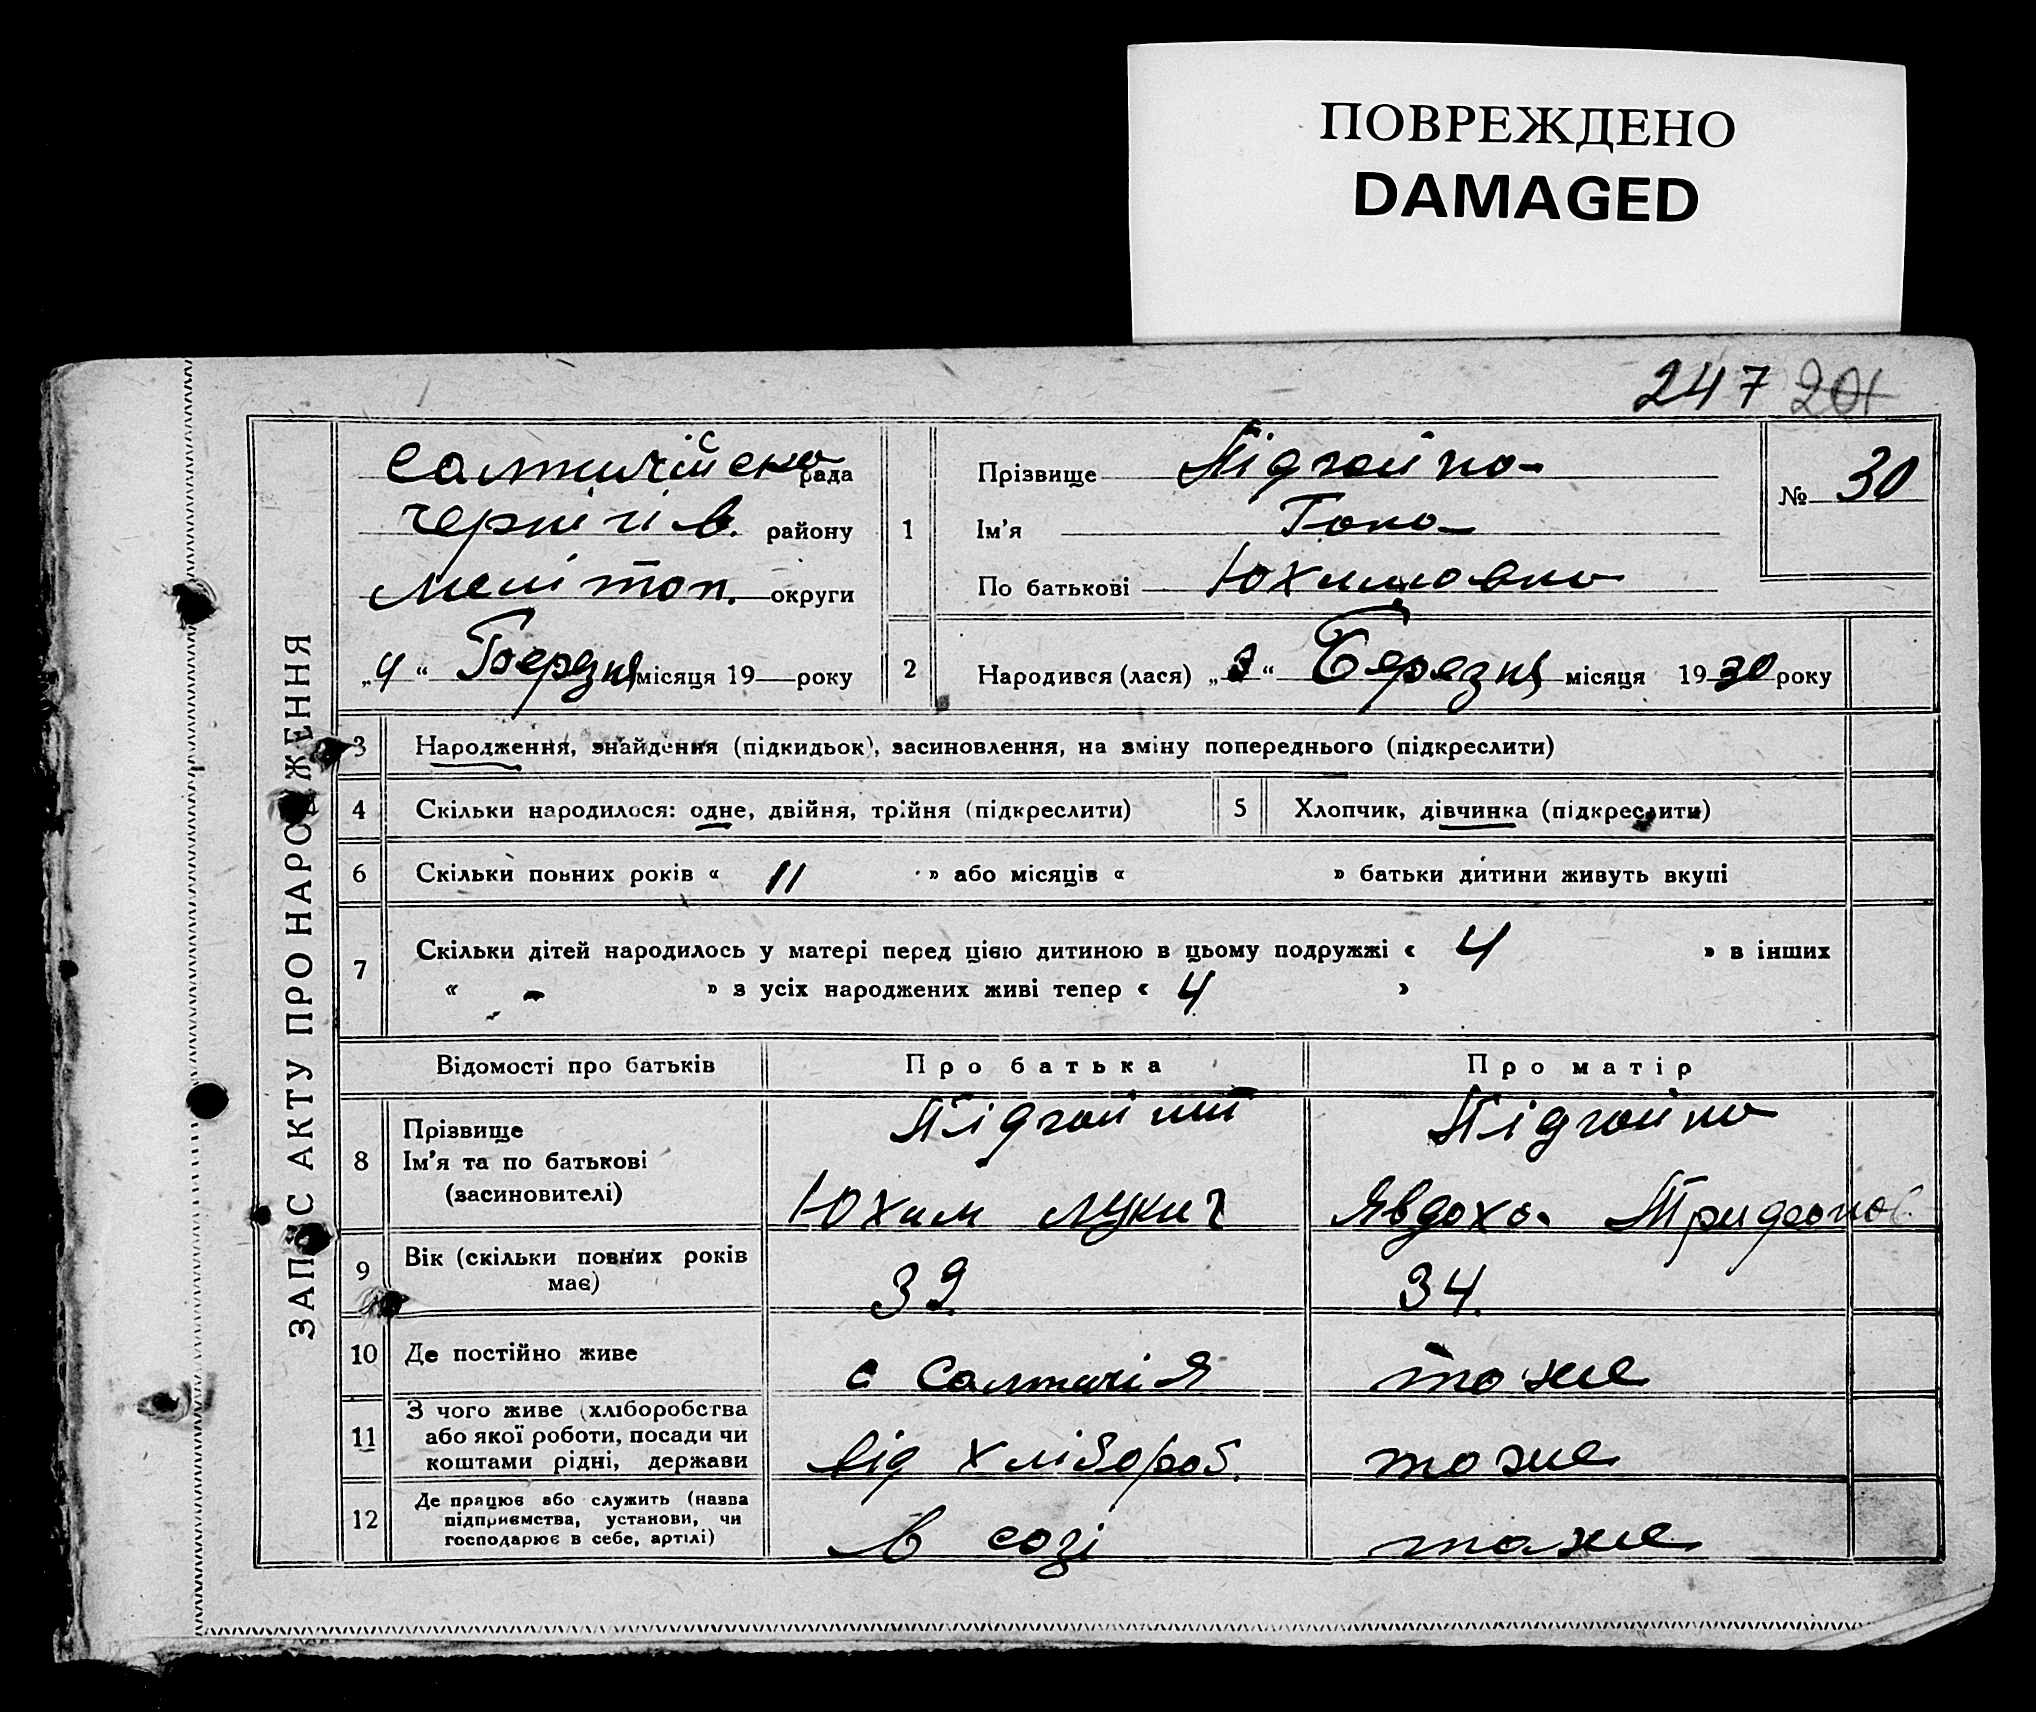 ПОВРЕЖДЕНО
DAMAGED
247 201
ЗАПИС АКТУ ПРО НАРОДЖЕННЯ
Салтичійська рада
Чернігів. району
Мелітоп. округи
„4“ Берзня місяця 19 року
1
Прізвище Підгайна
Ім'я
По батькові Юхимовна
№ 30
2 Народився (лася) „3“ Березня місяця 1930 року
3 Народження, знайдення (підкидьок), засиновлення, на зміну попереднього (підкреслити)
4 Скільки народилося: одне, двійня, трійня (підкреслити)
5 Хлопчик, дівчинка (підкреслити)
6 Скільки повних років « 11 » або місяців « » батьки дитини живуть вкупі
7 Скільки дітей народилось у матері перед цією дитиною в цьому подружжі « 4 » в інших
« - » з усіх народжених живі тепер « 4 »
Відомості про батьків Про батька Про матір
8 Прізвище
Ім'я та по батькові
(засиновителі)
Підгайний
Юхим Лукич
Підгайна
Явдоха
9 Вік (скільки повних років
має)
32
34
10 Де постійно живе с Салтичія тоже
11 З чого живе (хліборобства
або якої роботи, посади чи
коштами рідні, держави
від хлібороб. тоже
12 Де працює або служить (назва
підприємства, установи, чи
господарює в себе, артілі)
в созі тоже